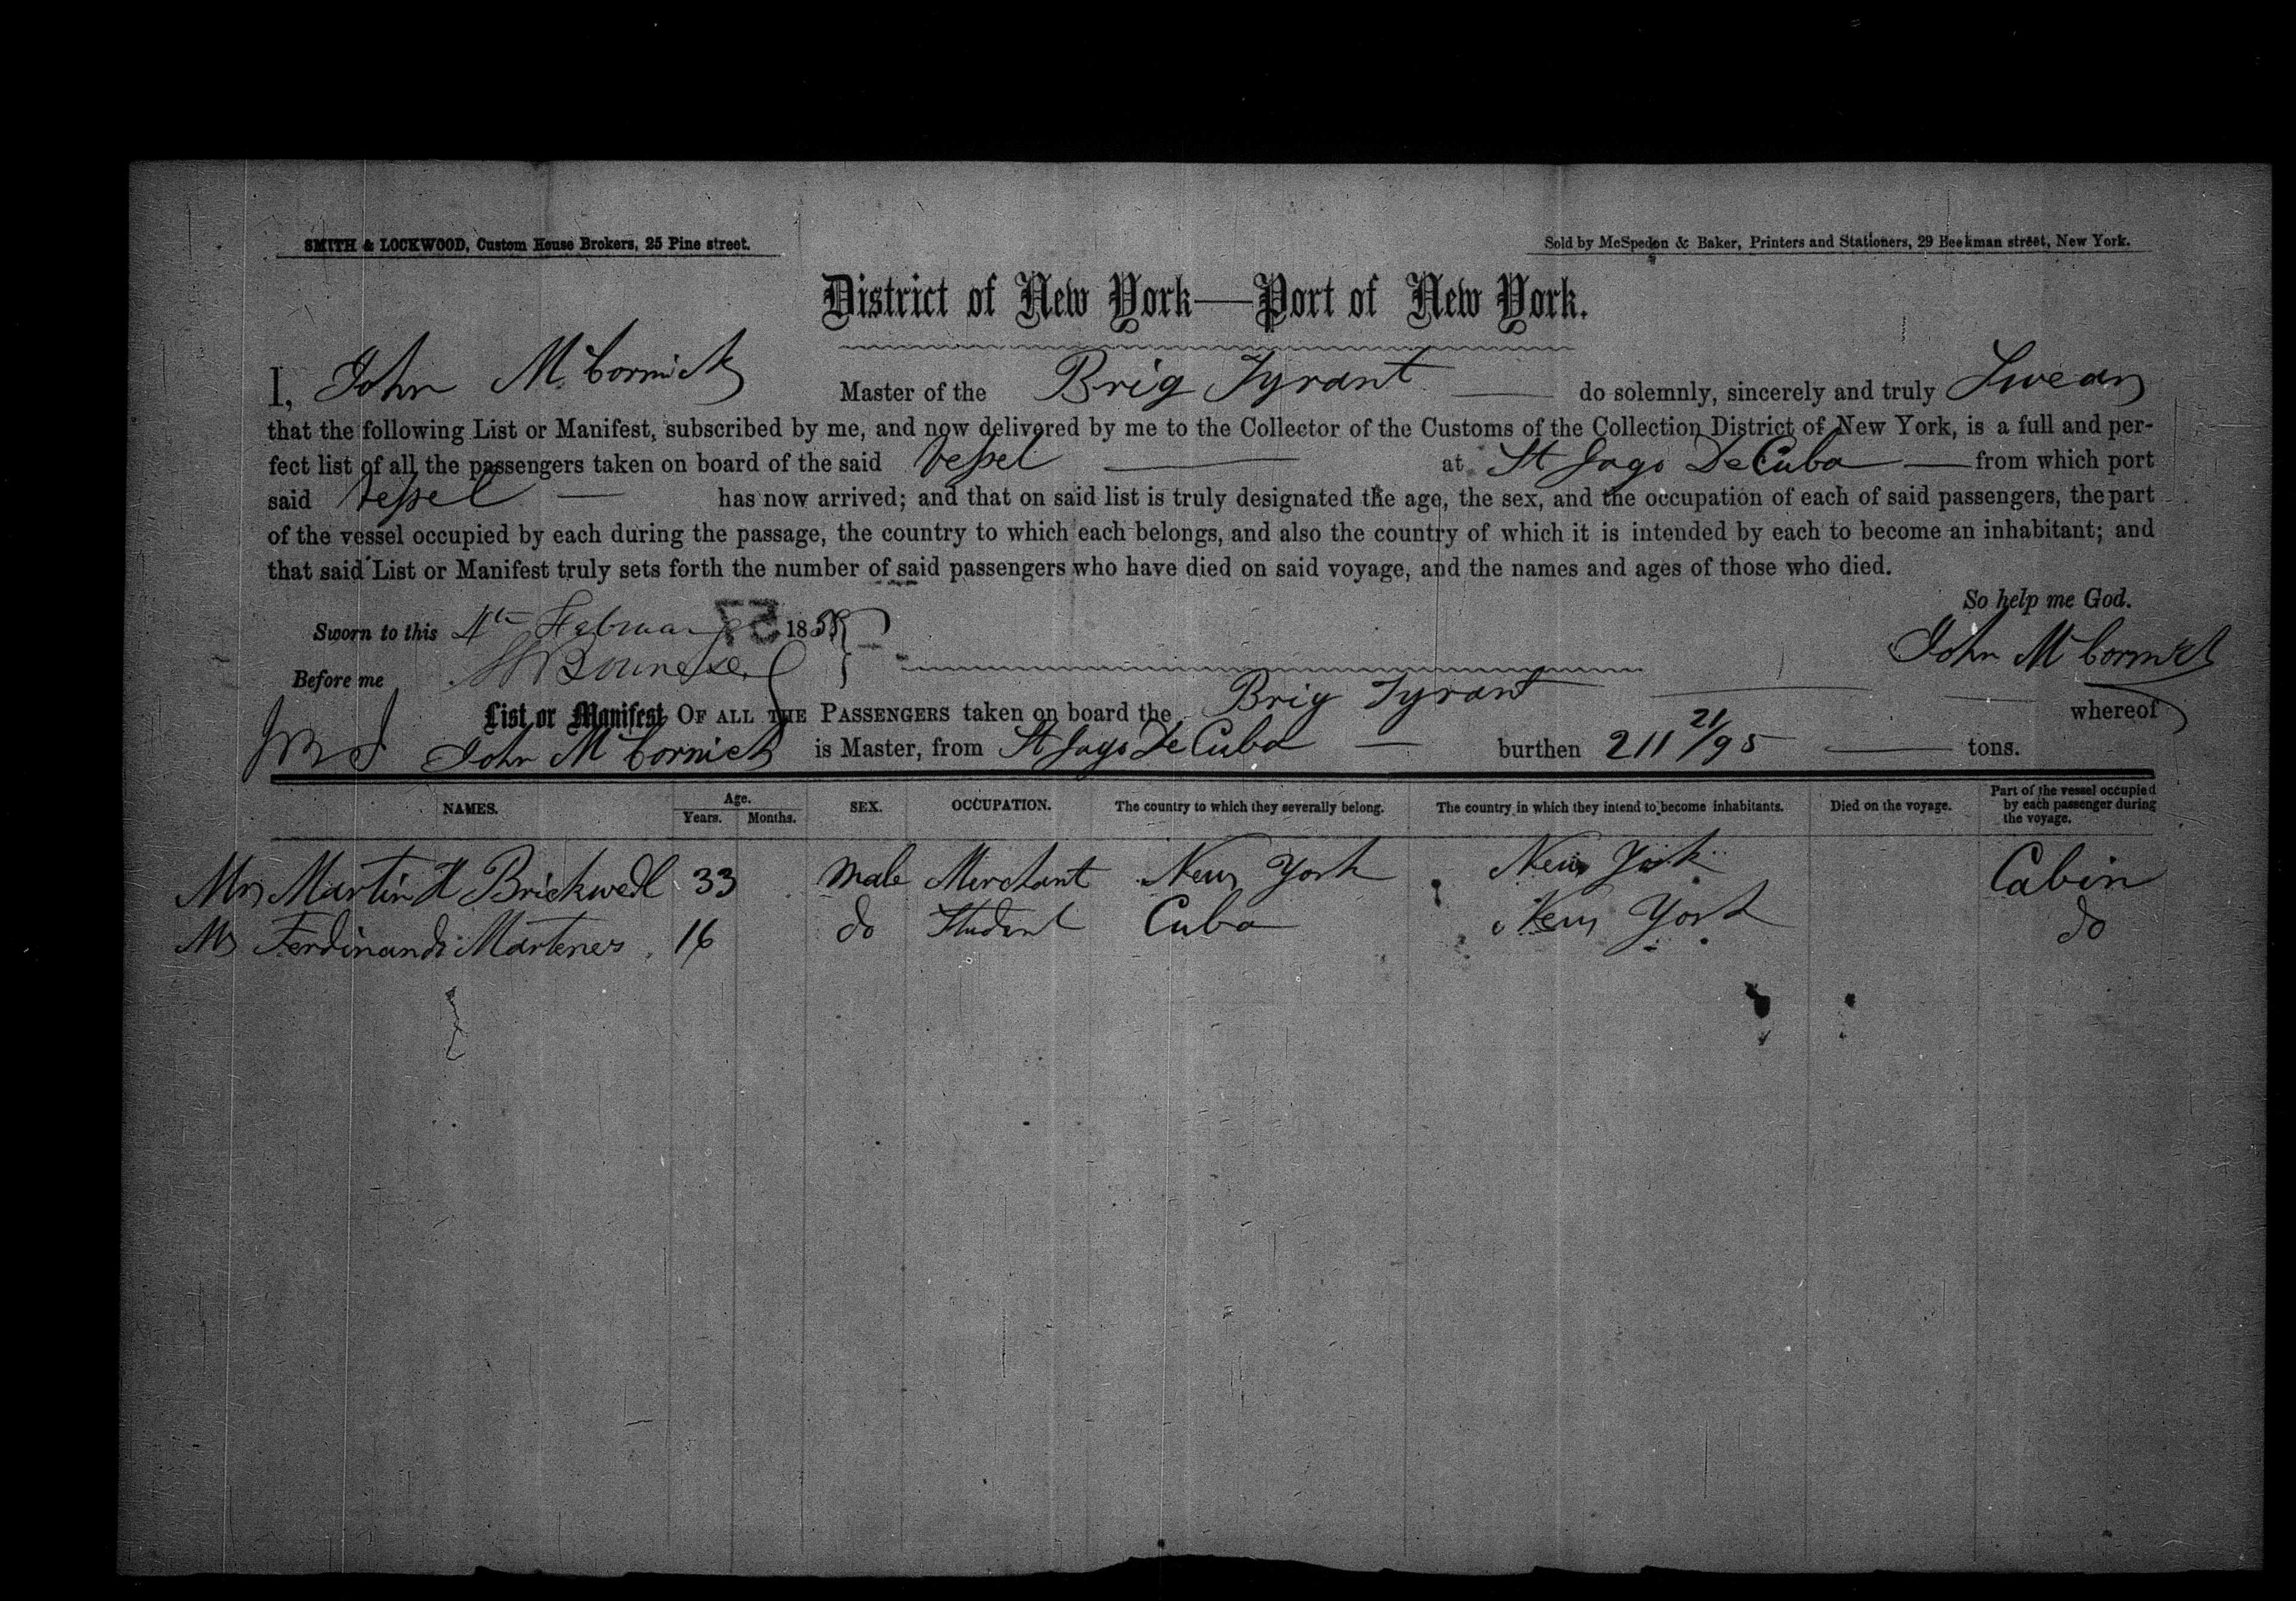 SMITH & LOCKWOOD, Custom House Brokers, 25 Pine street.
Sold by McSpedon & Baker, Printers and Stationers, 29 Beekman street, New York.
District of New York—Port of New York.
I, John McCormick Master of the Brig Tyrant do solemnly, sincerely and truly Swear
that the following List or Manifest, subscribed by me, and now delivered by me to the Collector of the Customs of the Collection District of New York, is a full and per-
fect list of all the passengers taken on board of the said Vessel at St Jago De Cuba from which port
said Vessel has now arrived; and that on said list is truly designated the age, the sex, and the occupation of each of said passengers, the part
of the vessel occupied by each during the passage, the country to which each belongs, and also the country of which it is intended by each to become an inhabitant; and
that said List or Manifest truly sets forth the number of said passengers who have died on said voyage, and the names and ages of those who died.
So help me God.
Sworn to this 4th February 1858
57
John McCormick
Before me
List or Manifest OF ALL THE PASSENGERS taken on board the Brig Tyrant whereof
John McCormick is Master, from St Jago De Cuba burthen 211 21/95 tons.
NAMES. Age. Years. Months. SEX. OCCUPATION. The country to which they severally belong. The country in which they intend to become inhabitants. Died on the voyage. Part of the vessel occupied by each passenger during the voyage.
Mr Martin H Brickwedl 33 Male Merchant New York New York Cabin
Mr Ferdinando Martenes 16 do Student Cuba New York do